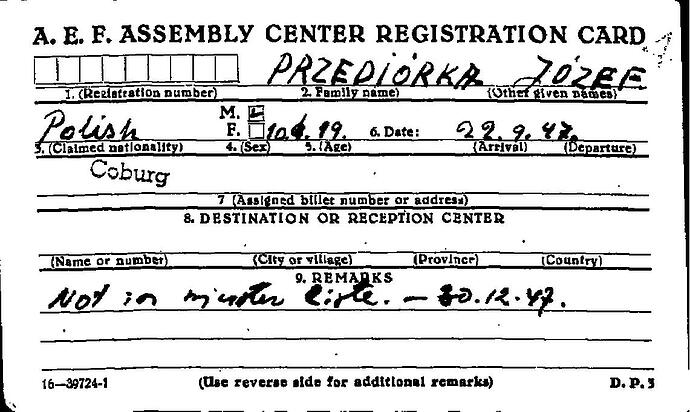 A. E. F. ASSEMBLY CENTER REGISTRATION CARD
PRZEDIÓRKA JÓZEF
1. (Registration number) 2. Family name) (Other given names)
Polish M. F. 19. 6. Date: 22.9.47.
3. (Claimed nationality) 4. (Sex) 5. (Age) (Arrival) (Departure)
Coburg
7 (Assigned billet number or address)
8. DESTINATION OR RECEPTION CENTER
(Name or number) (City or village) (Province) (Country)
9. REMARKS
Not in liste. — 30.12.47.
16—39724-1 (Use reverse side for additional remarks) D. P. 3